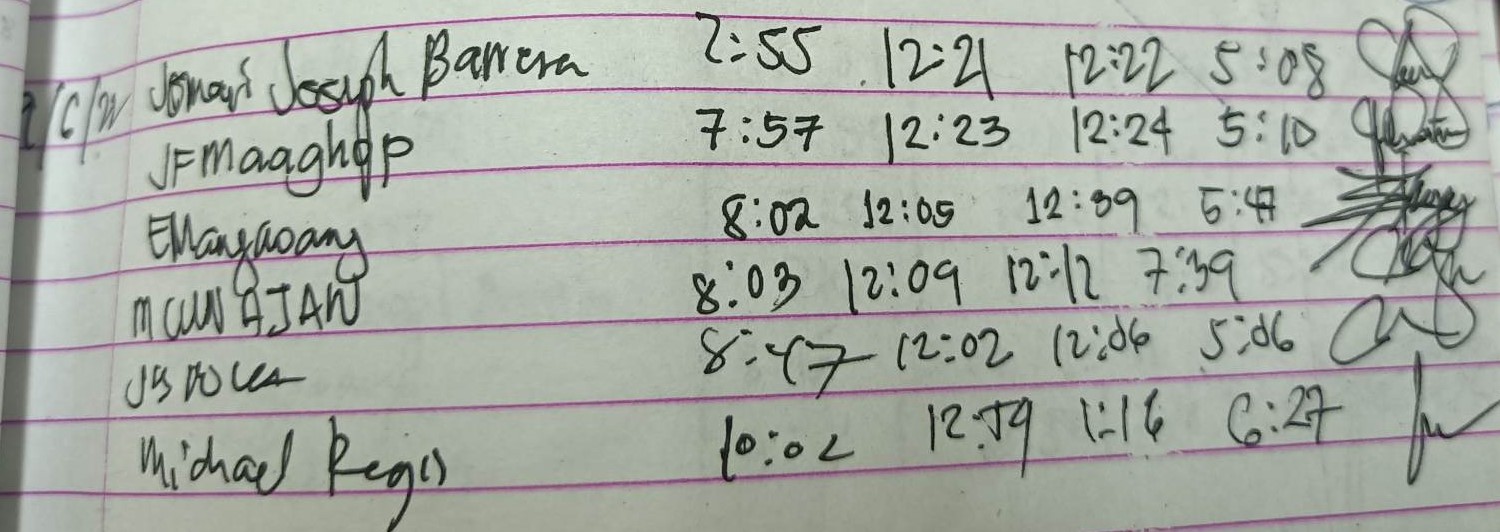 Jomari Joseph Barrera 7:55 12:21 12:22 5:08
JFMaaghop 7:57 12:23 12:24 5:10
EMangaoang 8:02 12:05 12:39 5:47
8:03 12:09 12:12 7:39
8:47 12:02 12:06 5:06
Michael Regis 10:02 12:59 1:16 6:27